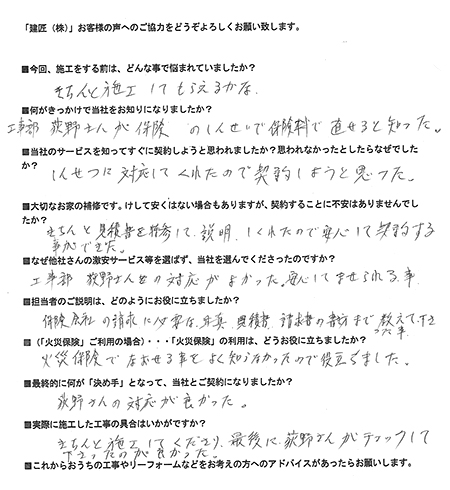 「建匠（株）」お客様の声へのご協力をどうぞよろしくお願い致します。
■今回、施工をする前は、どんな事で悩まれていましたか？
きちんと施工してもらえるかな
■何がきっかけで当社をお知りになりましたか？
工事部 荻野さんが保険 のしんせいで保険料で直せると知った。
■当社のサービスを知ってすぐに契約しようと思われましたか？思われなかったとしたらなぜでした
か？
しんせつに対応してくれたので契約しようと思った。
■大切なお家の補修です。けして安くはない場合もありますが、契約することに不安はありませんでし
たか？
きちんと見積書を持参して、説明、してくれたので安心して契約する
事ができた。
■なぜ他社さんの激安サービス等を選ばず、当社を選んでくださったのですか？
工事部 荻野さんとの対応がよかった。安心してまかせられる事
■担当者のご説明は、どのようにお役に立ちましたか？
保険会社の請求に必要な写真、見積書、請求書の書方まで教えて下さ
った事
■（「火災保険」ご利用の場合）・・・「火災保険」の利用は、どうお役に立ちましたか？
火災保険でなおせる事をよく知らなかったので役立ちました。
■最終的に何が「決め手」となって、当社とご契約になりましたか？
荻野さんの対応が良かった。
■実際に施工した工事の具合はいかがですか？
きちんと施工してくださり、最後に荻野さんがチェックして
下さったのが良かった。
■これからおうちの工事やリーフォームなどをお考えの方へのアドバイスがあったらお願いします。